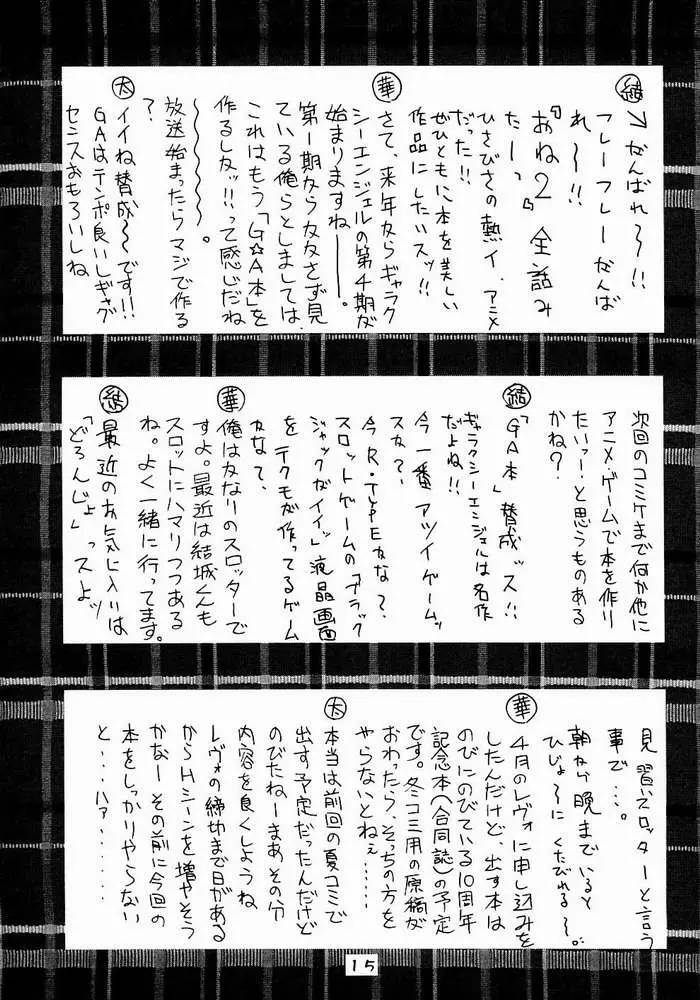 結→がんばれ〜!!
フレーフレーがんば
れ〜!!
『おね2』全話み
た〜っ
ひさびさの熱イ、アニメ
だった!!
ぜひともに本を美しい
作品にしたいスッ!!
華
さて、来年からギャラク
シーエンジェルの第4期が
始まりますね――。
第一期からかかさず見
ている俺らとしましては、
これはもう「G☆A本」を
作るしか!!って感じだね
〜〜〜〜。
放送始まったらマジで作る
?
太
イイね賛成〜です!!
GAはテンポ良いしギャグ
センスおもろいしね
次回のコミケまで何か他に
アニメ・ゲームで本を作り
たいっー!と思うものある
かね?
結
「GA本」賛成ッス!!
ギャラクシーエンジェルは名作
だよね!!
今一番アツイゲームッ
スか?、
今R・TYPEかな?、
スロットゲームの「ブラック
ジャックがイイッ」液晶画面
をテクモが作ってるゲーム
かな?、
華
俺はかなりのスロッターで
すよ。最近は結城くんも
スロットにハマりつつある
ね。よく一緒に行ってます。
結
最近のお気に入りは
「どろんじょ」っスよッ
見習いスロッターと言う
事で…。
朝から晩までいると
ひじょ〜にくたびれる〜。
華
4月のレヴォに申し込みを
したんだけど、出す本は
のびにのびている10周年
記念本(合同誌)の予定
です。冬コミ用の原稿が
おわったら、そっちの方を
やらないとねぇ……
太
本当は前回の夏コミで
出す予定だったんだけど
のびたねーまあその分
内容を良くしようね
レヴォの締切まで日がある
からHシーンを増やそう
かなー その前に今回の
本をしっかりやらない
と…ハァ…
15